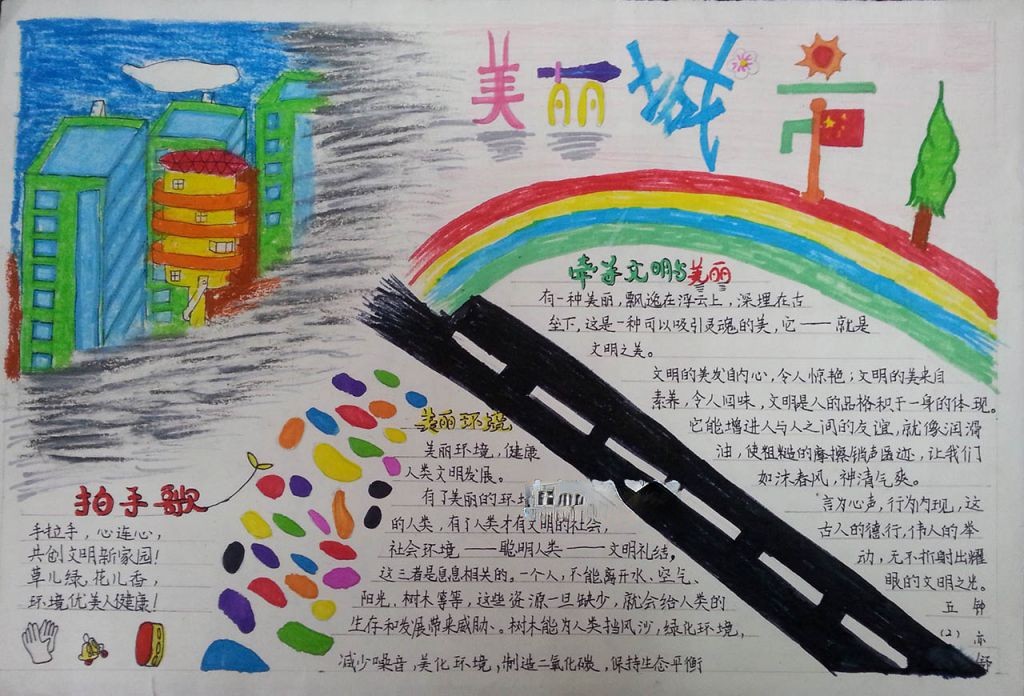 美丽城市
牵手文明与美丽
有一种美丽,飘逸在浮云上,深埋在古
垒下,这是一种可以吸引灵魂的美,它——就是
文明之美。
文明的美发自内心,令人惊艳;文明的美来自
素养,令人回味,文明是人的品格和于一身的体现。
它能增进人与人之间的友谊,就像润滑
油,使粗糙的摩擦销声匿迹,让我们
如沐春风,神清气爽。
言为心声,行为内现,这
古人的德行,伟人的举
动,无不折射出耀
眼的文明之光。
五 钟
(2) 亦
舒
美丽环境
美丽环境,健康
人类文明发展。
有了美丽的环境
的人类,有了人类才有文明的社会,
社会环境——聪明人类——文明礼结。
这三者是息息相关的。一个人,不能离开水、空气、
阳光,树木等等,这些资源一旦缺少,就会给人类的
生存和发展带来威胁、。树木能为人类挡风沙,绿化环境,
减少噪音,美化环境,制造二氧化碳,保持生态平衡
拍手歌
手拉手,心连心,
共创文明新家园!
草儿绿,花儿香,
环境优美人健康!